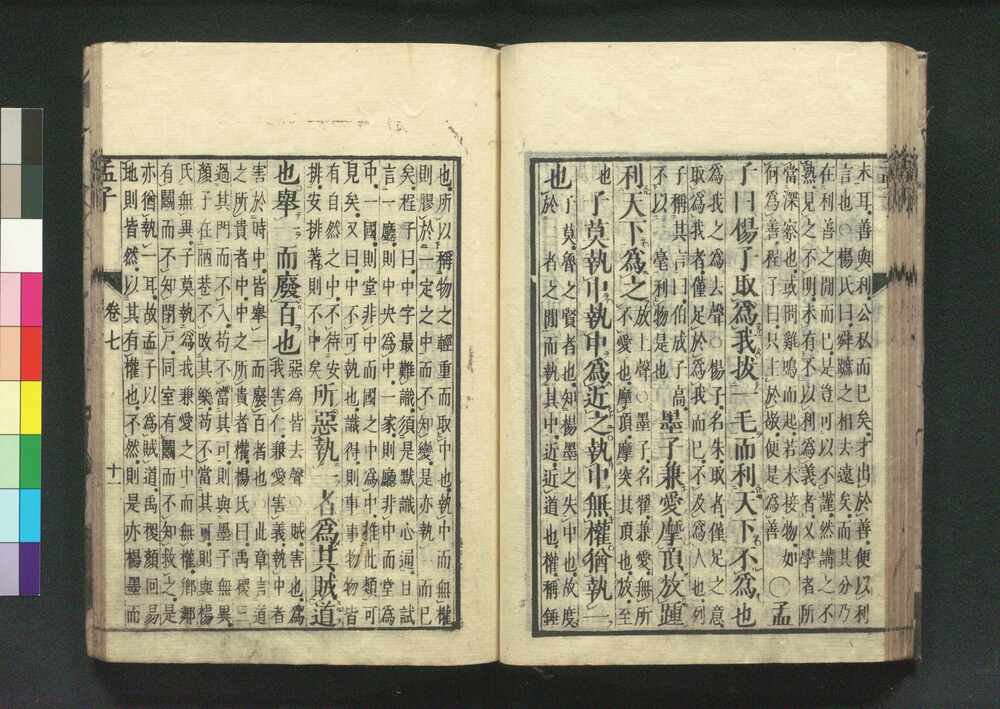 未耳善與利公私而已矣才出於善便以利
言也○楊氏曰舜蹠之相去遠矣而其分乃
在利善之間而已是豈可以不謹然講之不
熟見之不明未有不以利為義者又學者所
當深察也或問雞鳴而起若未接物如
何為善程子曰只主於敬便是為善○孟
子曰楊子取為我拔一毛而利天下不為也
為我之為去聲○楊子名朱取者僅足之意
取為我者僅足於為我而已不及為人也列
子稱其言曰伯成子高
不以一毫利物是也
墨子兼愛摩頂放踵
利天下為之
放上聲○墨子名翟兼愛無所
不愛也摩頂摩突其頂也放至
也
子莫執中執中為近之執中無權猶執一
也
子莫魯之賢者也知楊墨之失中也故度
於二者之間而執其中近近道也權稱錘
也所以稱物之輕重而取中也執中而無權
則膠於一定之中而不知變是亦執一而已
矣程子曰中字最難識須是默識心通且試
言一廳則中央為中一家則廳非中而堂為
中一國則堂非中而國之中為中推此類可
見矣又曰中不可執也識得則事事物物皆
有自然之中不待安
排安排著則不中矣
所惡執一者為其賊道
也舉一而廢百也
惡為皆去聲○賊害也為
我害仁兼愛害義執中者
害於時中皆舉一而廢百者也○此章言道
之所貴者中中之所貴者權楊氏曰禹稷三
過其門而不入苟不當其可則與墨子無異
顏子在陋巷不改其樂苟不當其可則與楊
氏無異子莫執為我兼愛之中而無權鄉鄰
有鬭而不知閉戶同室有鬭而不知救之是
亦猶執一耳故孟子以為賊道禹稷顏回易
地則皆然以其有權也不然則是亦楊墨而
孟子
卷七
十一